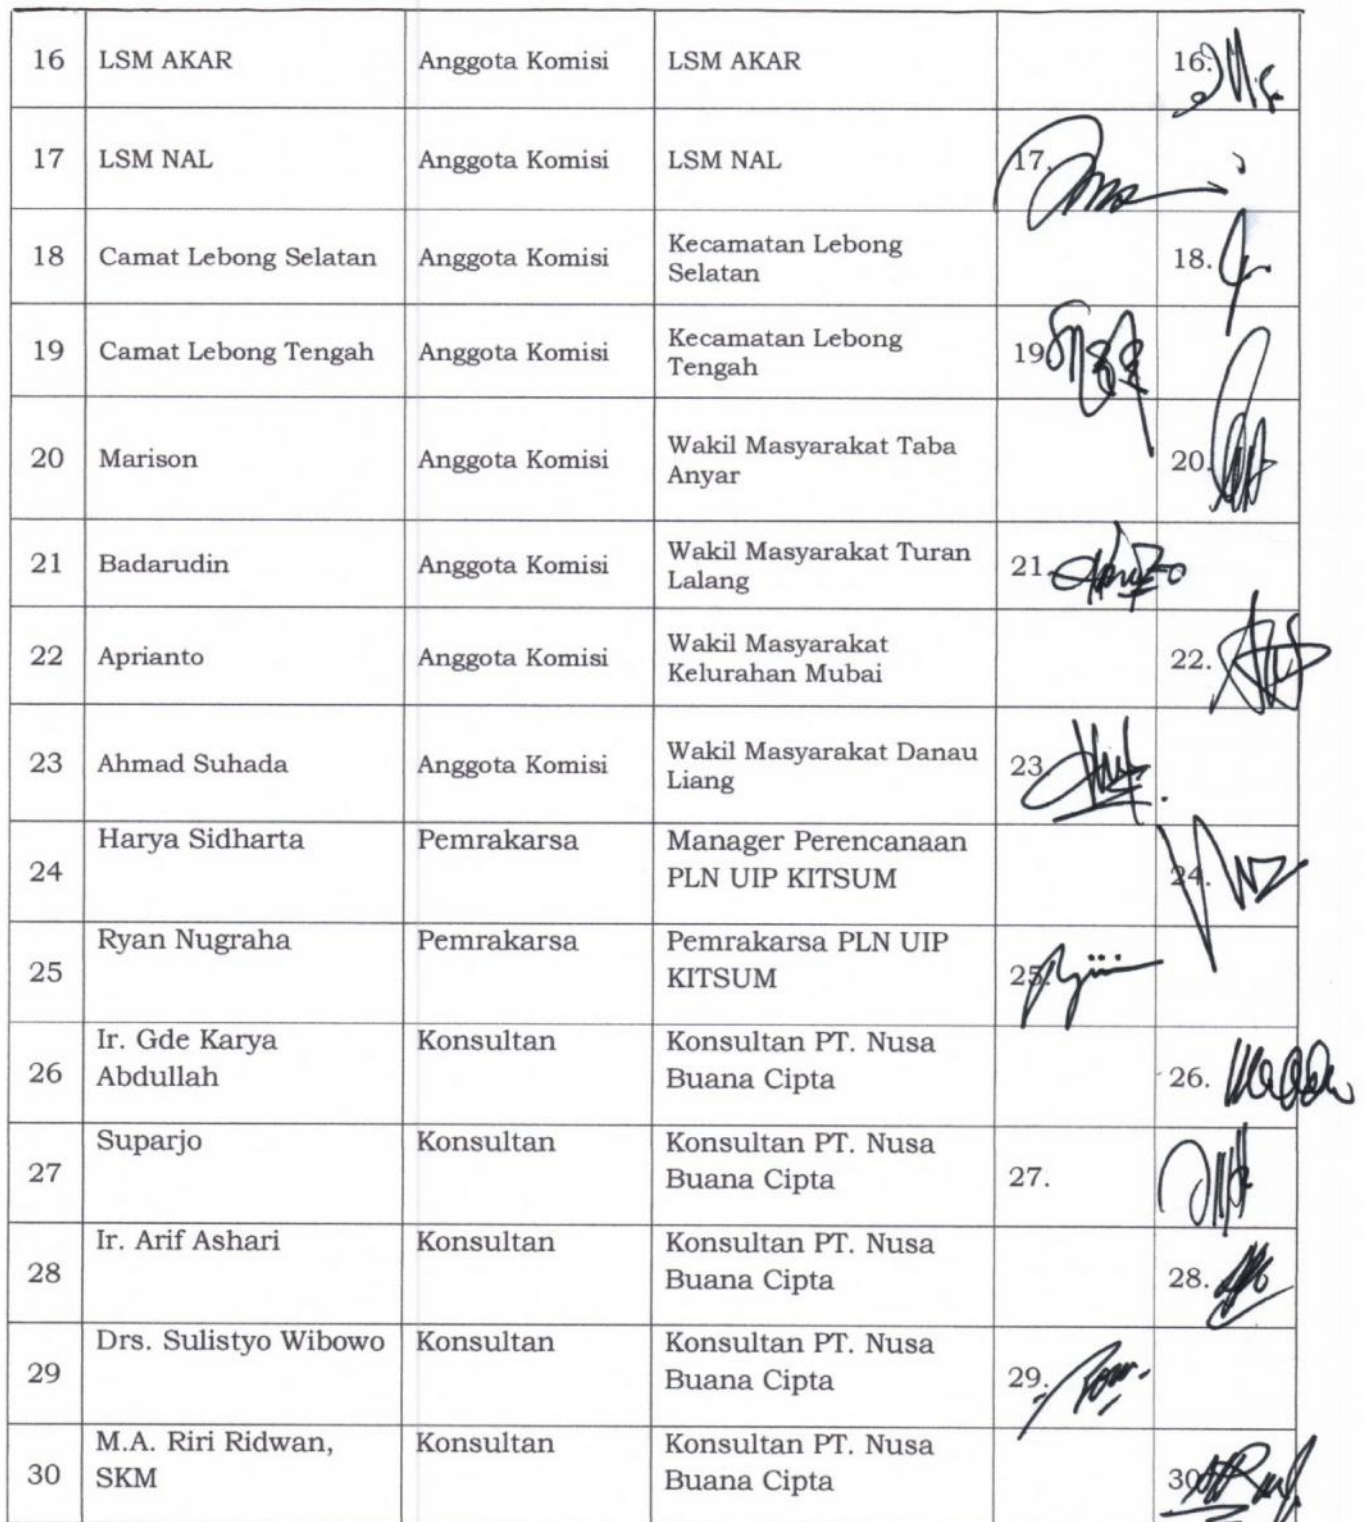 16 LSM AKAR Anggota Komisi LSM AKAR 16.
17 LSM NAL Anggota Komisi LSM NAL 17.
18 Camat Lebong Selatan Anggota Komisi Kecamatan Lebong
Selatan 18.
19 Camat Lebong Tengah Anggota Komisi Kecamatan Lebong
Tengah 19
20 Marison Anggota Komisi Wakil Masyarakat Taba
Anyar 20.
21 Badarudin Anggota Komisi Wakil Masyarakat Turan
Lalang 21.
22 Aprianto Anggota Komisi Wakil Masyarakat
Kelurahan Mubai 22.
23 Ahmad Suhada Anggota Komisi Wakil Masyarakat Danau
Liang 23.
24 Harya Sidharta Pemrakarsa Manager Perencanaan
PLN UIP KITSUM 24.
25 Ryan Nugraha Pemrakarsa Pemrakarsa PLN UIP
KITSUM 25.
26 Ir. Gde Karya Konsultan Konsultan PT. Nusa
Abdullah Buana Cipta 26.
27 Suparjo Konsultan Konsultan PT. Nusa
Buana Cipta 27.
28 Ir. Arif Ashari Konsultan Konsultan PT. Nusa
Buana Cipta 28.
29 Drs. Sulistyo Wibowo Konsultan Konsultan PT. Nusa
Buana Cipta 29.
30 M.A. Riri Ridwan, Konsultan Konsultan PT. Nusa
SKM Buana Cipta 30